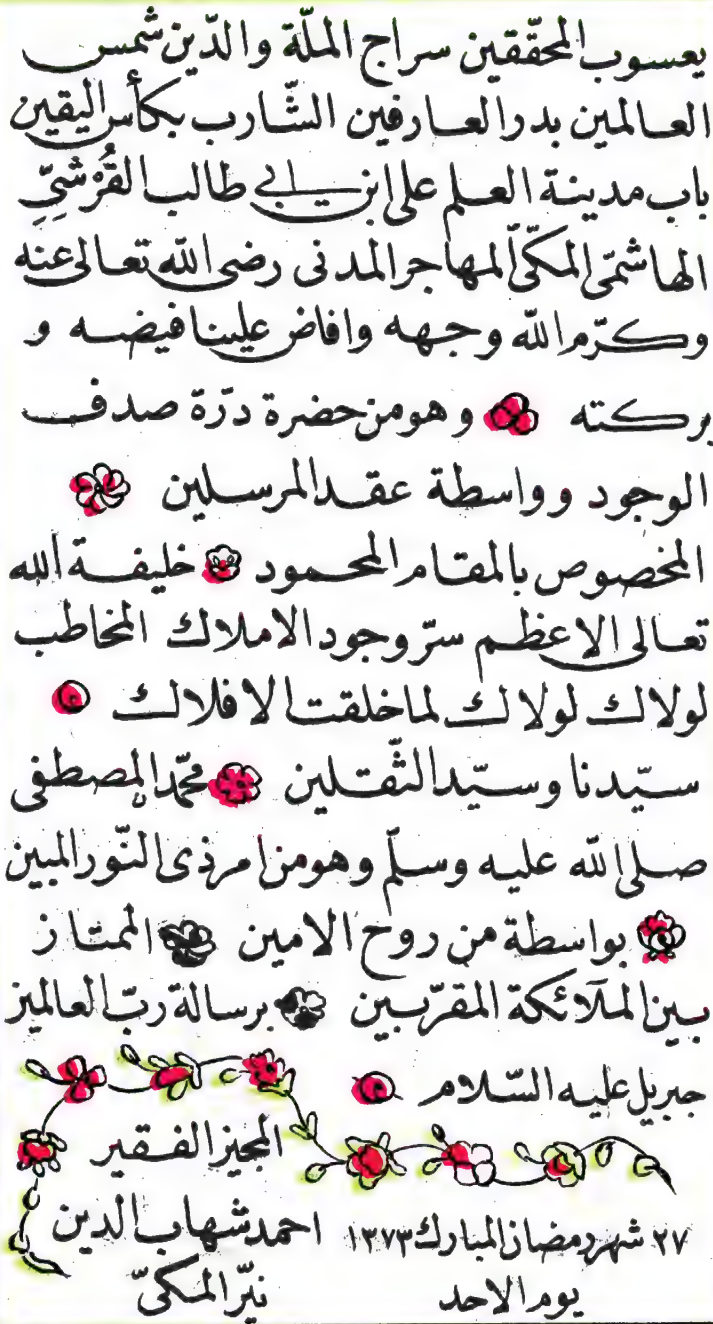 يعسوب المحقّقين سراج الملّة والدّين شمس
العالمين بدر العارفين الشّارب بكأس اليقين
باب مدينة العلم على ابن ابي طالب القُرَشيِّ
الهاشمّى المكّى المهاجر المدنى رضى الله تعالى عنه
وكرّم الله وجهه وافاض علينا فيضه و
بركته وهو من حضرة درّة صدف
الوجود وواسطة عقد المرسلين
المخصوص بالمقام المحمود خليفة الله
تعالى الاعظم سرّ وجود الاملاك المخاطب
لولاك لولاك لما خلقت الافلاك
سيّدنا وسيّد الثّقلين محمّد المصطفى
صلى الله عليه وسلّم وهو من امر ذى النّور المبين
بواسطة من روح الامين الممتاز
بين الملآئكة المقرّبين برسالة ربّ العالمين
جبريل عليه السّلام
المجيز الفقير
احمد شهاب الدين
نيّر المكىّ
٢٧ شهر رمضان المبارك ١٣٧٣
يوم الاحد